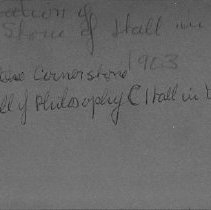 ration of
Stone of Hall in
tine Cornerstone 1903
ll of Philosophy (Hall in